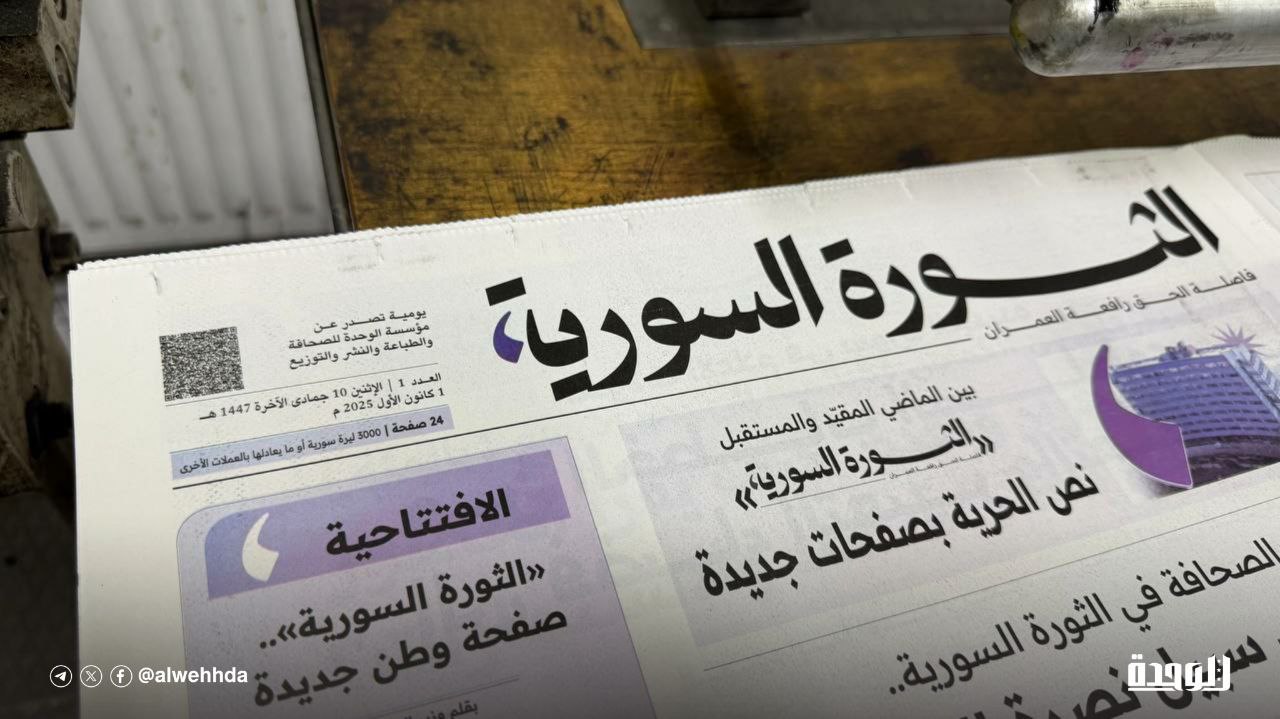 الثورة السورية
فاصلة الحق رافعة العمران
يومية تصدر عن
مؤسسة الوحدة للصحافة
والطباعة والنشر والتوزيع
العدد 1 | الإثنين 10 جمادى الآخرة 1447 هـ
1 كانون الأول 2025 م
24 صفحة | 3000 ليرة سورية أو ما يعادلها بالعملات الأخرى
بين الماضي المقيّد والمستقبل
«الثورة السورية»
فاصلة الحق رافعة العمران
نص الحرية بصفحات جديدة
الافتتاحية
«الثورة السورية»..
صفحة وطن جديدة
بقلم
الصحافة في الثورة السورية..
سبيل نصرة
الوحدة
@alwehhda